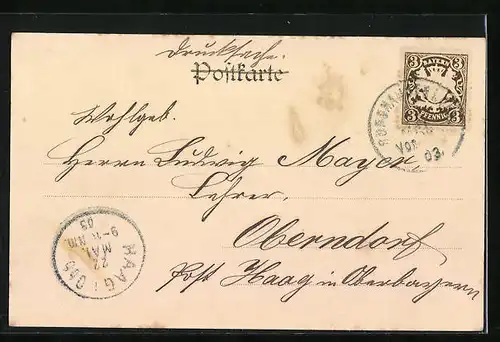 Drucksache.
Postkarte
BAYERN
3 3
3 PFENNIG 3
VOR
03
Wohlgeb.
Herrn Ludwig Mayer,
Lehrer.
Oberndorf
Post Haag in Oberbayern
HAAG i. OBB
22
MAI
9-10
03